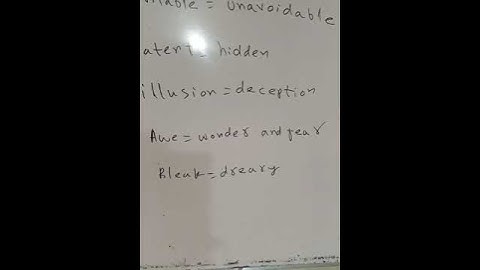 = Unavoidable
= hidden
illusion = deception
Awe = wonder and fear
Bleak = dreary